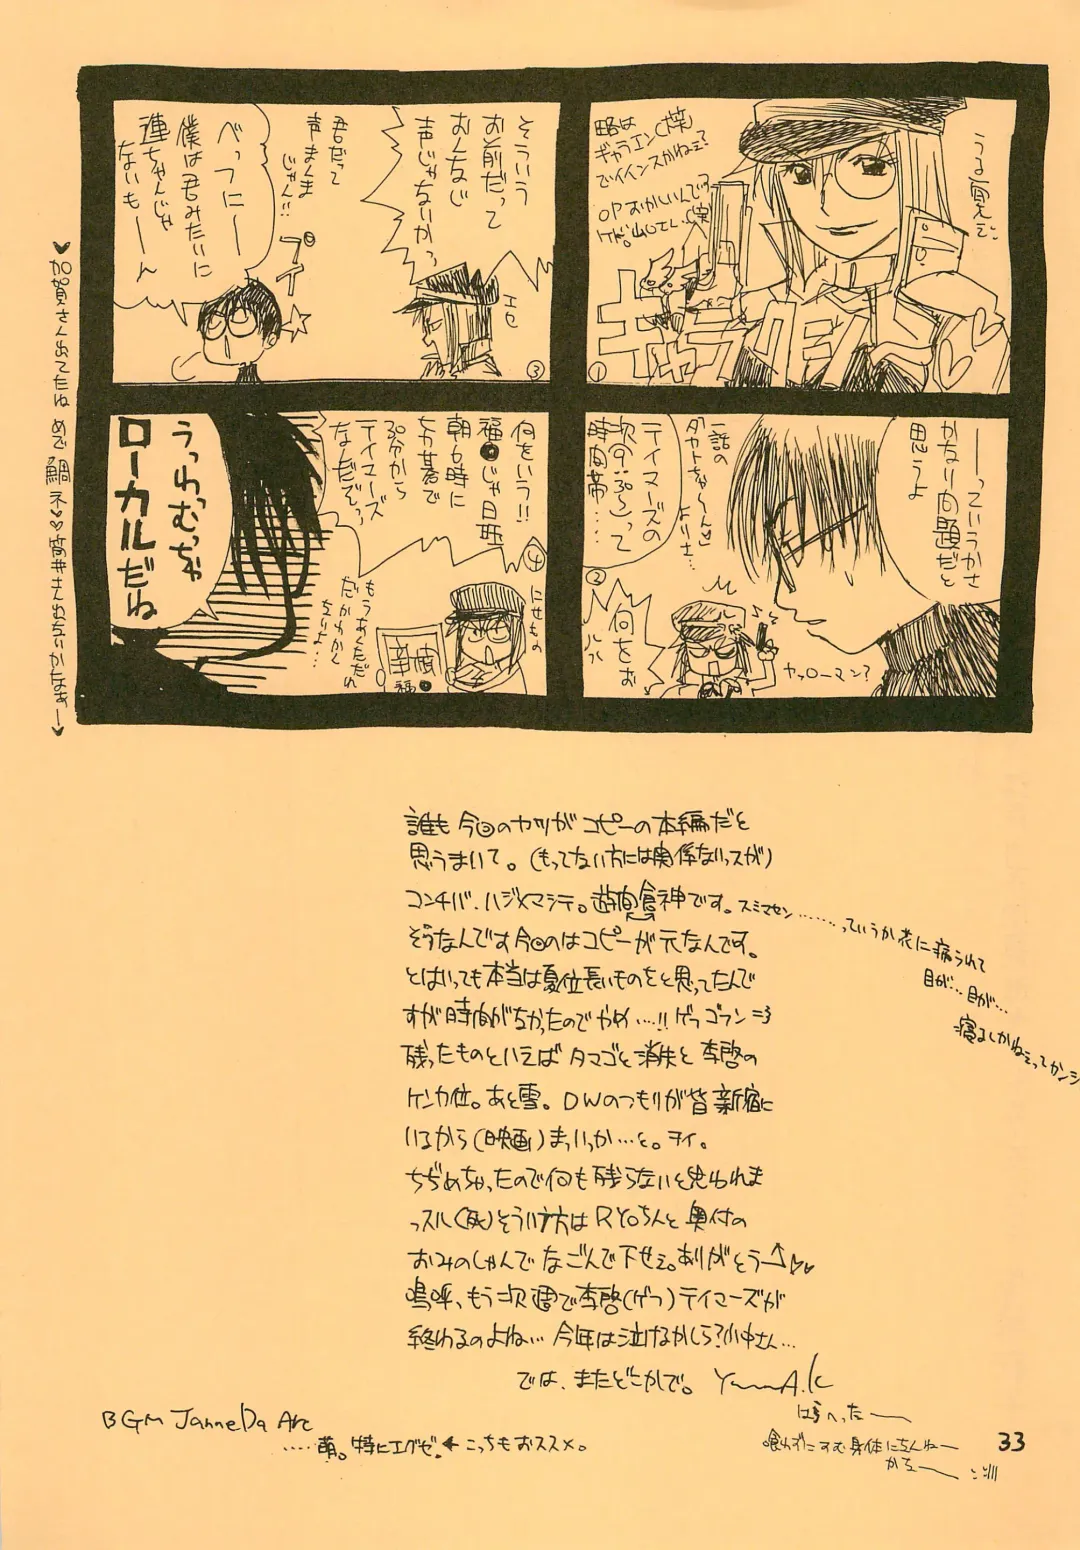 うる覚えで。
略は
ギャラエン(笑)
でイインスかねぇ?
OPおかしいんです
①
ギャラ
——っていうかさ
かなり問題だと
思うよ
一話の
タカトちゃ〜ん♡
よりさ…
テイマーズの
時間帯…
②
何をぉ
ヤッローマン?
そういう
お前だって
おんなじ
声じゃないかっ
エセ
③
君だって
声まんま
じゃん!!
プイ☆
べっつにー
僕は君みたいに
連ちゃんじゃ
ないもーーん
何をいう!!
福●じゃ日曜
朝6時に
30分から
テイマーズ
なんだぞっ
④
にせもの
福●
うっわっむっちゃ
ローカルだね
♥加賀さん出てたね めで鯛ネ♡♡
誰も今回のヤツがコピーの本編だと
思うまいて。(もってない方には関係ないっスが)
コンチバ、ハジメマシテ。遊食神です。スミマセン……
っていうか
目が…目が…
そうなんです今回のはコピーが元なんです。
とはいっても本当は夏位長いものをと思ってたんで
すが時間がなかったのでやめ…!! ゲフゴフン=3
残ったものといえばタマゴと消失と李啓の
ケンカ位。あと雪。DWのつもりが皆新宿に
いるから(映画)まっいっか…と。ヲイ。
ちぢめちゃったので何も残らないと思われま
っスル(死)そういう方はRYOちんと奥付の
おみのしゃんでなごんで下せぇ。ありがとう♡♡
嗚呼、もう次週で李啓(ゲフ)テイマーズが
終わるのよね… 今年は泣けるかしら?小中さん…
では、またどこかで。
はらへったー
BGM JanneDa Arc
……萌。特にエグゼ!←こっちもおススメ。
喰わずにすむ身体になんねー
かなー
33